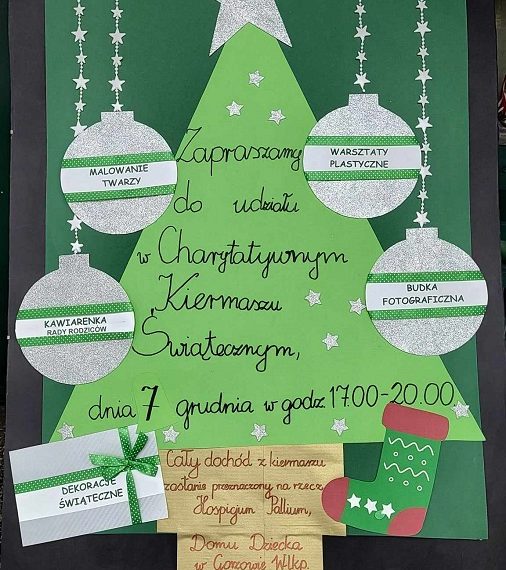 Zapraszamy
do udziału
w Charytatywnym
Kiermaszu
Świątecznym,
dnia 7 grudnia w godz 17.00-20.00.
MALOWANIE
TWARZY
WARSZTATY
PLASTYCZNE
KAWIARENKA
RADY RODZICÓW
BUDKA
FOTOGRAFICZNA
DEKORACJE
ŚWIĄTECZNE
Cały dochód z kiermaszu
zostanie przeznaczony na rzecz
Hospicjum Pallium,
Domu Dziecka
w Gorzowie Wlkp.